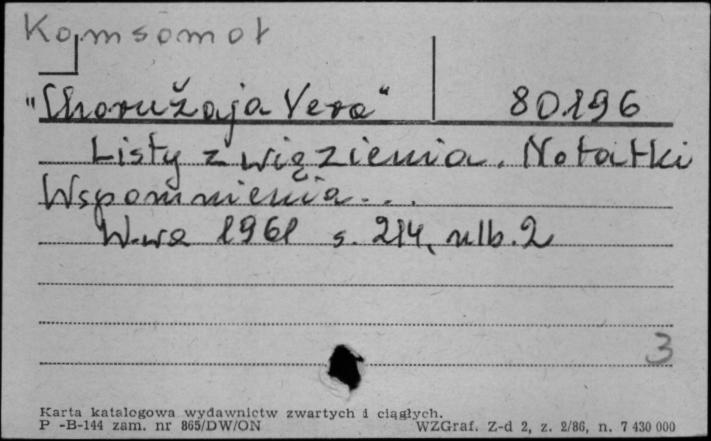 Komsomoł
"Choružaja Vera" 80.196
Listy z więzienia. Notatki
Wspomnienia...
W-wa 1961 s. 214, nlb. 2
3
Karta katalogowa wydawnictw zwartych i ciągłych.
P -B-144 zam. nr 865/DW/ON WZGraf. Z-d 2, z. 2/86, n. 7 430 000